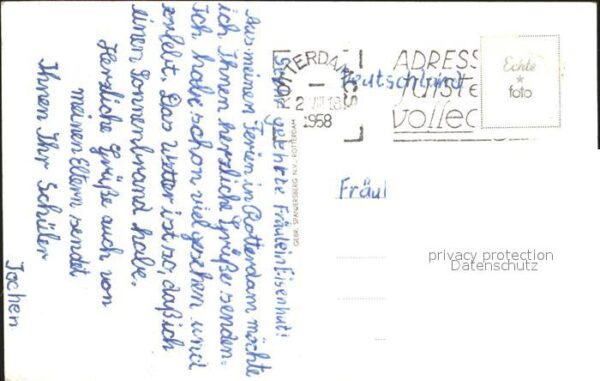 Sehr geehrte Fräulein Eisenhut!
Aus meinen Ferien in Rotterdam möchte
ich Ihnen herzliche Grüße senden.
Ich habe schon viel gesehen und
erlebt. Das Wetter ist so, daß ich
einen Sonnenbrand habe.
Herzliche Grüße auch von
meinen Eltern sendet
Ihnen Ihr Schüler
Jochen
GEBR. SPANJERSBERG N.V., ROTTERDAM
ROTTERDAM
1958
ADRES
JUIST
volle
Echte
foto
Deutschland
Fräul
privacy protection
Datenschutz